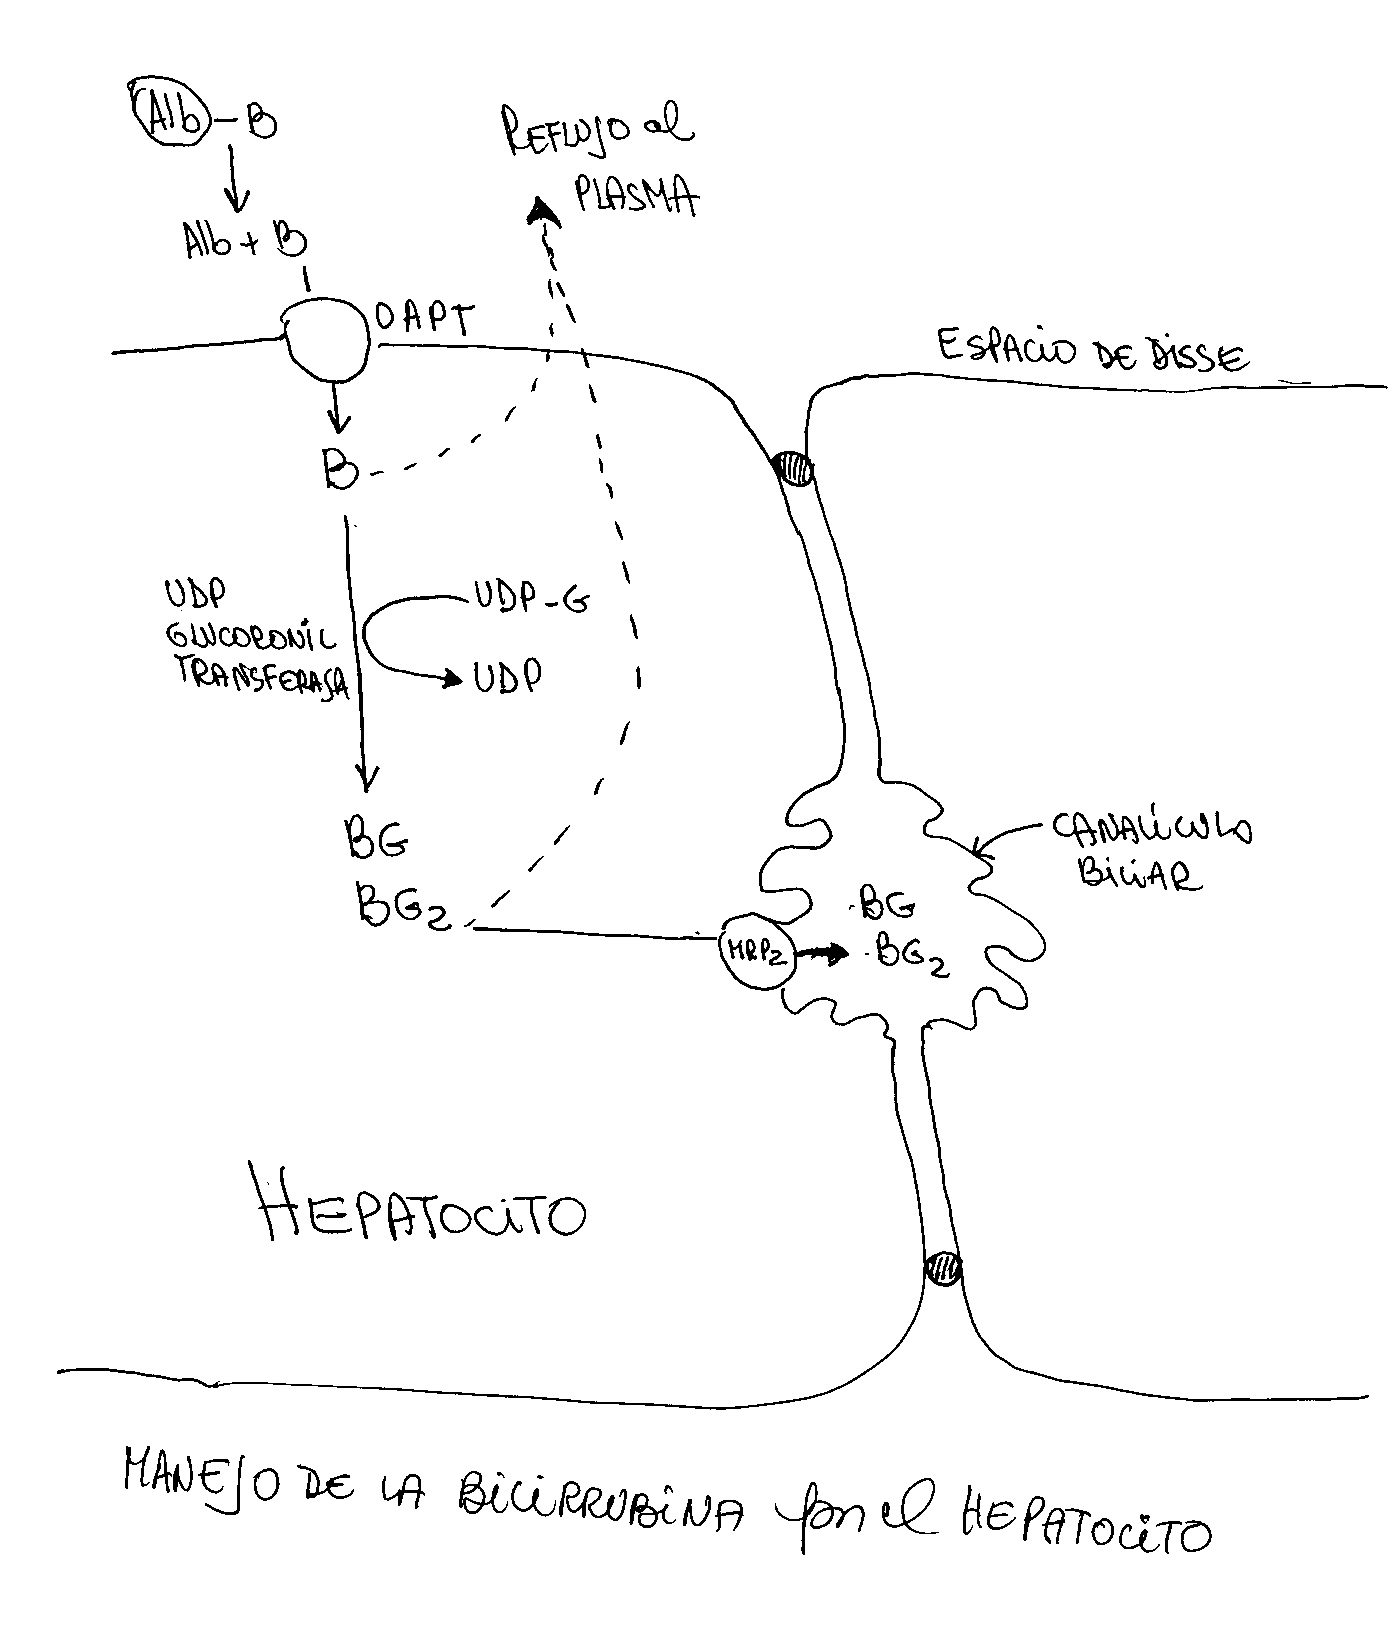 Alb - B
Alb + B
REFLUJO al
PLASMA
OAPT
ESPACIO DE DISSE
B
UDP
GLUCORONIL
TRANSFERASA
UDP-G
UDP
BG
BG2
CANALÍCULO
BILIAR
BG
MRP2
BG2
HEPATOCITO
MANEJO DE LA BILIRRUBINA por el HEPATOCITO